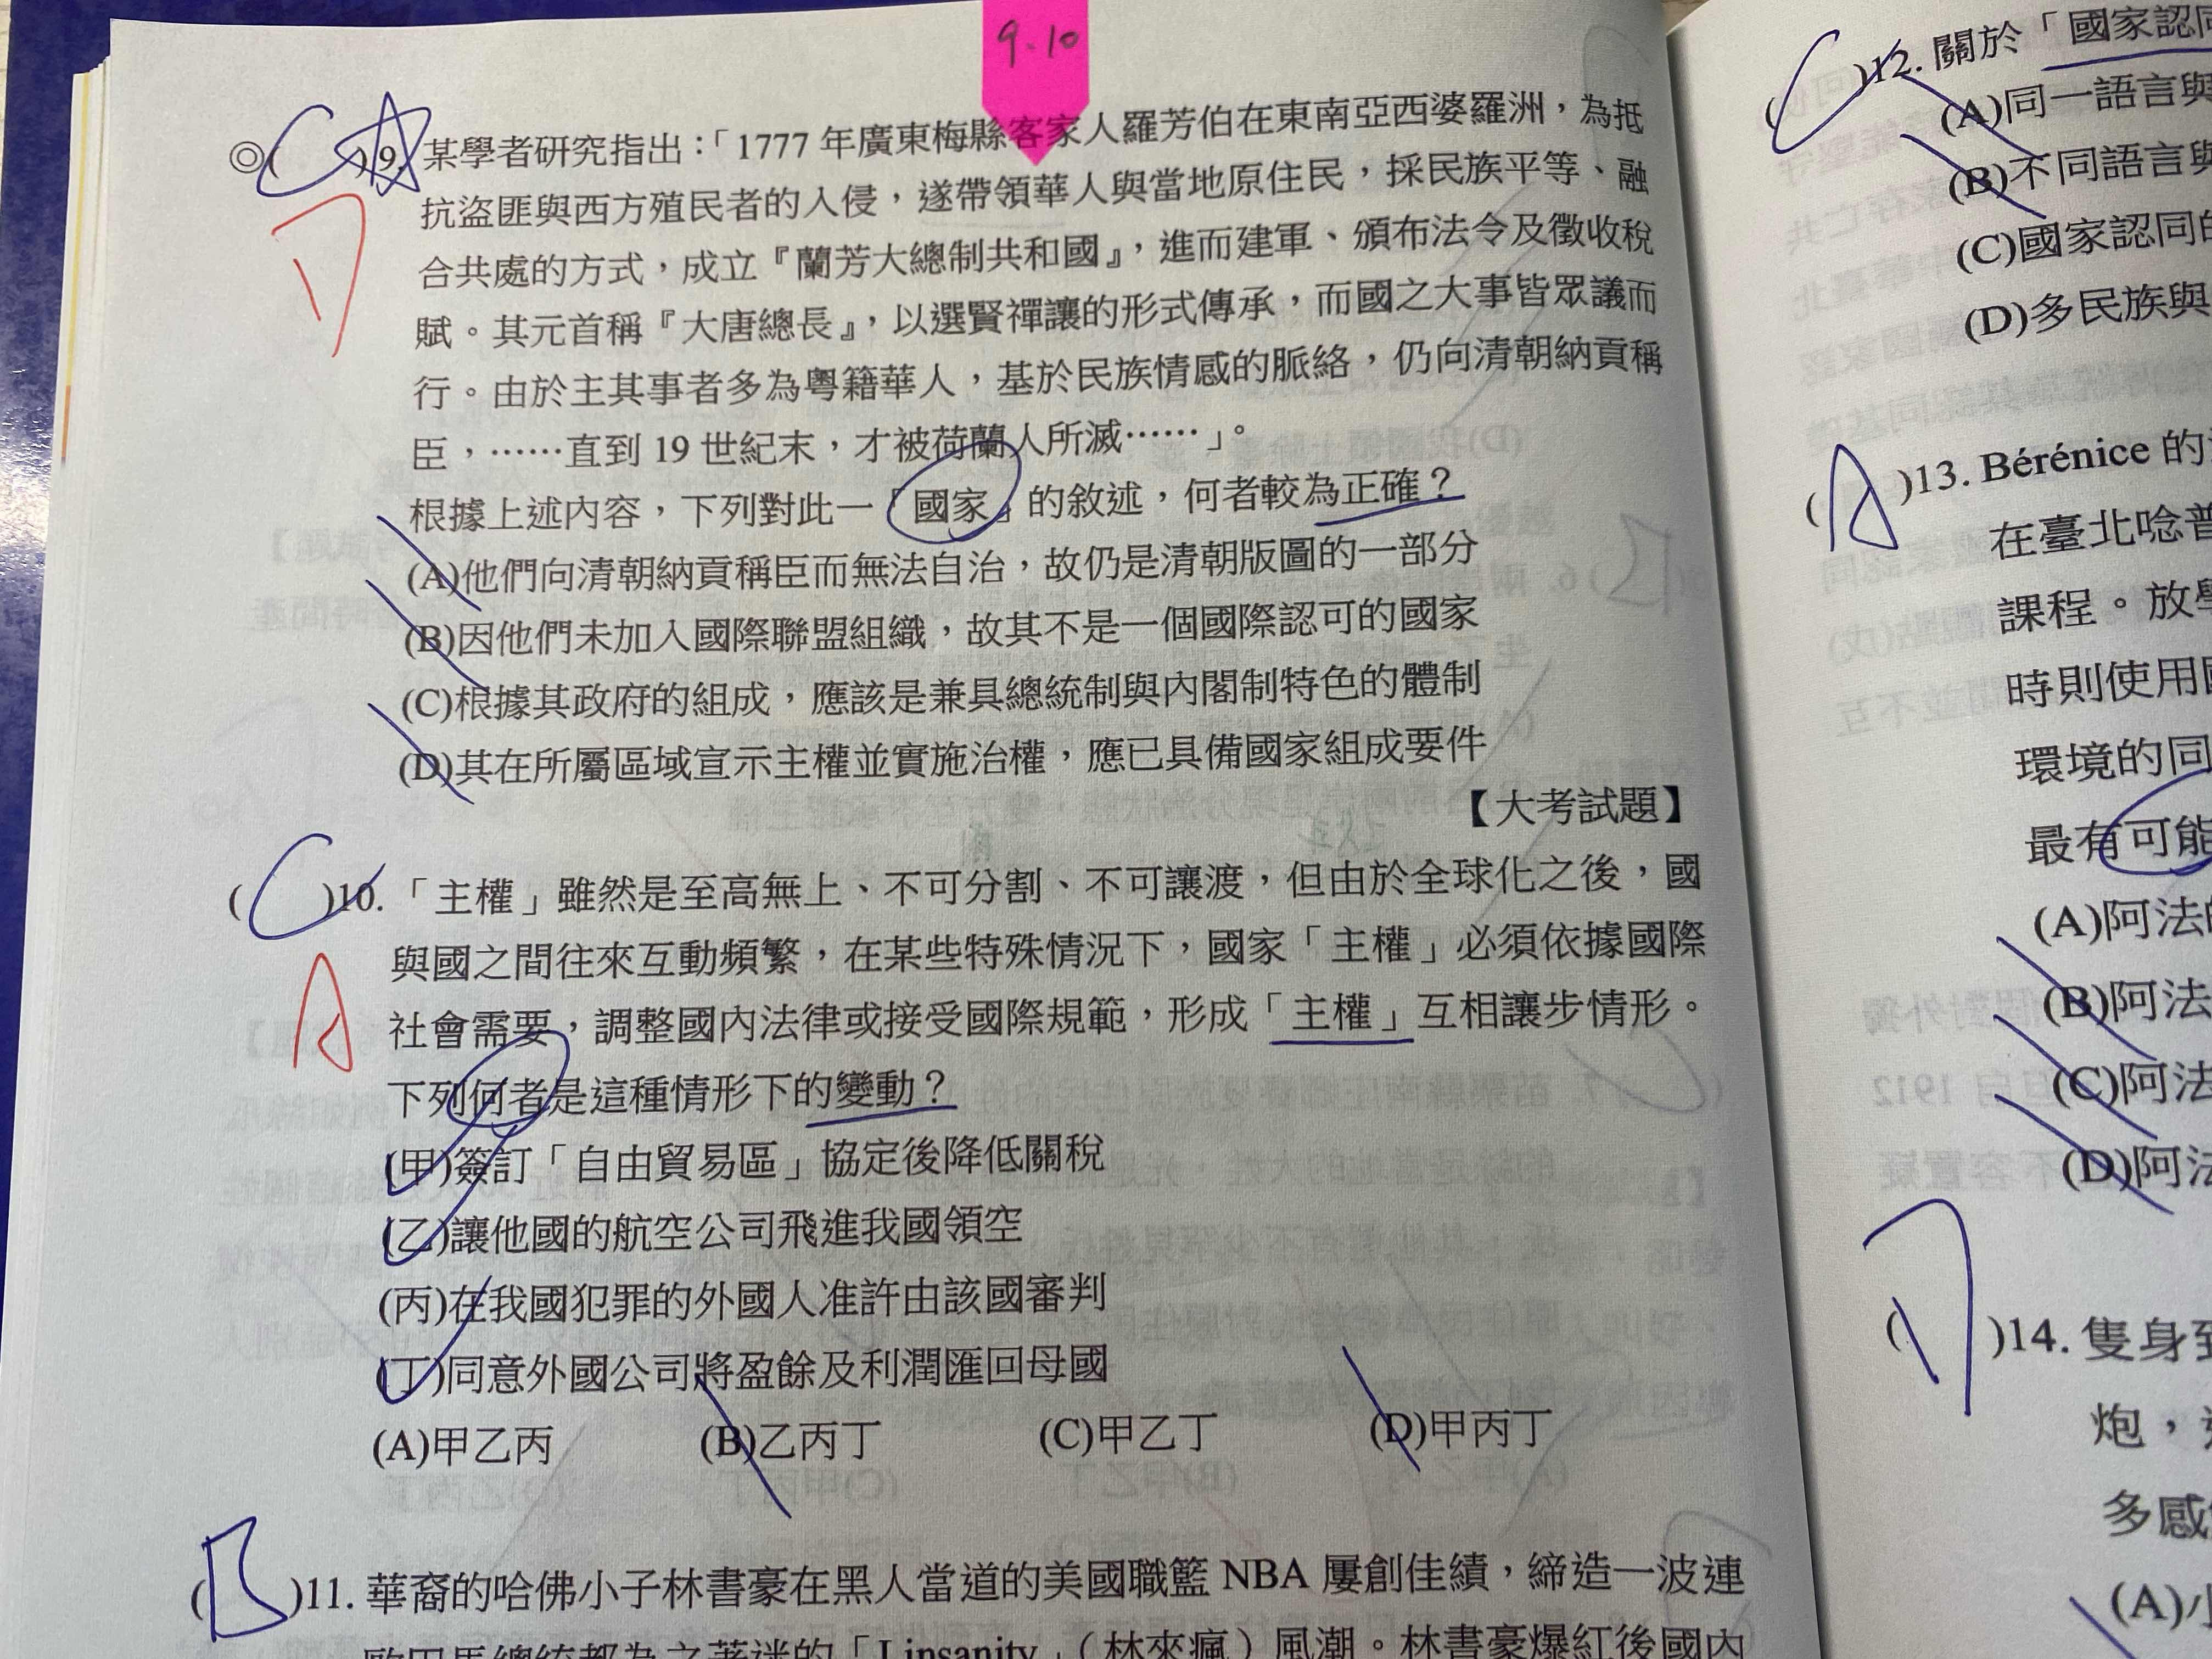 9.10
◎(C)9.某學者研究指出：「1777 年廣東梅縣客家人羅芳伯在東南亞西婆羅洲，為抵
抗盜匪與西方殖民者的入侵，遂帶領華人與當地原住民，採民族平等、融
合共處的方式，成立『蘭芳大總制共和國』，進而建軍、頒布法令及徵收稅
賦。其元首稱『大唐總長』，以選賢禪讓的形式傳承，而國之大事皆眾議而
行。由於主其事者多為粵籍華人，基於民族情感的脈絡，仍向清朝納貢稱
臣，……直到 19 世紀末，才被荷蘭人所滅……」。
根據上述內容，下列對此一「國家」的敘述，何者較為正確？
(A)他們向清朝納貢稱臣而無法自治，故仍是清朝版圖的一部分
(B)因他們未加入國際聯盟組織，故其不是一個國際認可的國家
(C)根據其政府的組成，應該是兼具總統制與內閣制特色的體制
(D)其在所屬區域宣示主權並實施治權，應已具備國家組成要件
【大考試題】
D
(C)10.「主權」雖然是至高無上、不可分割、不可讓渡，但由於全球化之後，國
與國之間往來互動頻繁，在某些特殊情況下，國家「主權」必須依據國際
社會需要，調整國內法律或接受國際規範，形成「主權」互相讓步情形。
下列何者是這種情形下的變動？
(甲)簽訂「自由貿易區」協定後降低關稅
(乙)讓他國的航空公司飛進我國領空
(丙)在我國犯罪的外國人准許由該國審判
(丁)同意外國公司將盈餘及利潤匯回母國
(A)甲乙丙 (B)乙丙丁 (C)甲乙丁 (D)甲丙丁
A
(B)11.華裔的哈佛小子林書豪在黑人當道的美國職籃 NBA 屢創佳績，締造一波連
歐巴馬總統都為之著迷的「Linsanity」（林來瘋）風潮。林書豪爆紅後國內
(C)12.關於「國家認同
(A)同一語言與
(B)不同語言與
(C)國家認同的
(D)多民族與
(A)13. Bérénice 的
在臺北唸普
課程。放學
時則使用國
環境的同
最有可能
(A)阿法的
(B)阿法
(C)阿法
(D)阿法
(D)14.隻身到
炮，
多感
(A)小